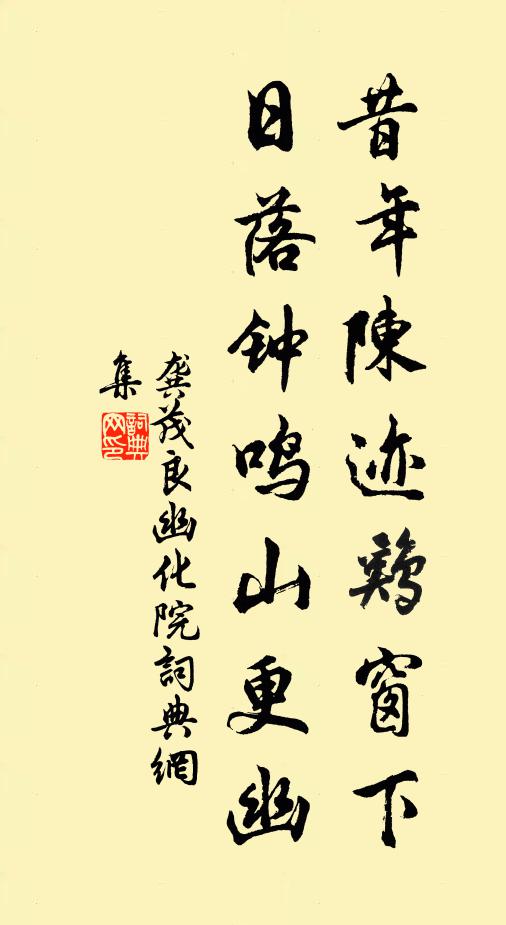 昔年陳迹鷄窗下
日落钟鸣山更幽
龚茂良幽化院詞典網
集
詞典网印